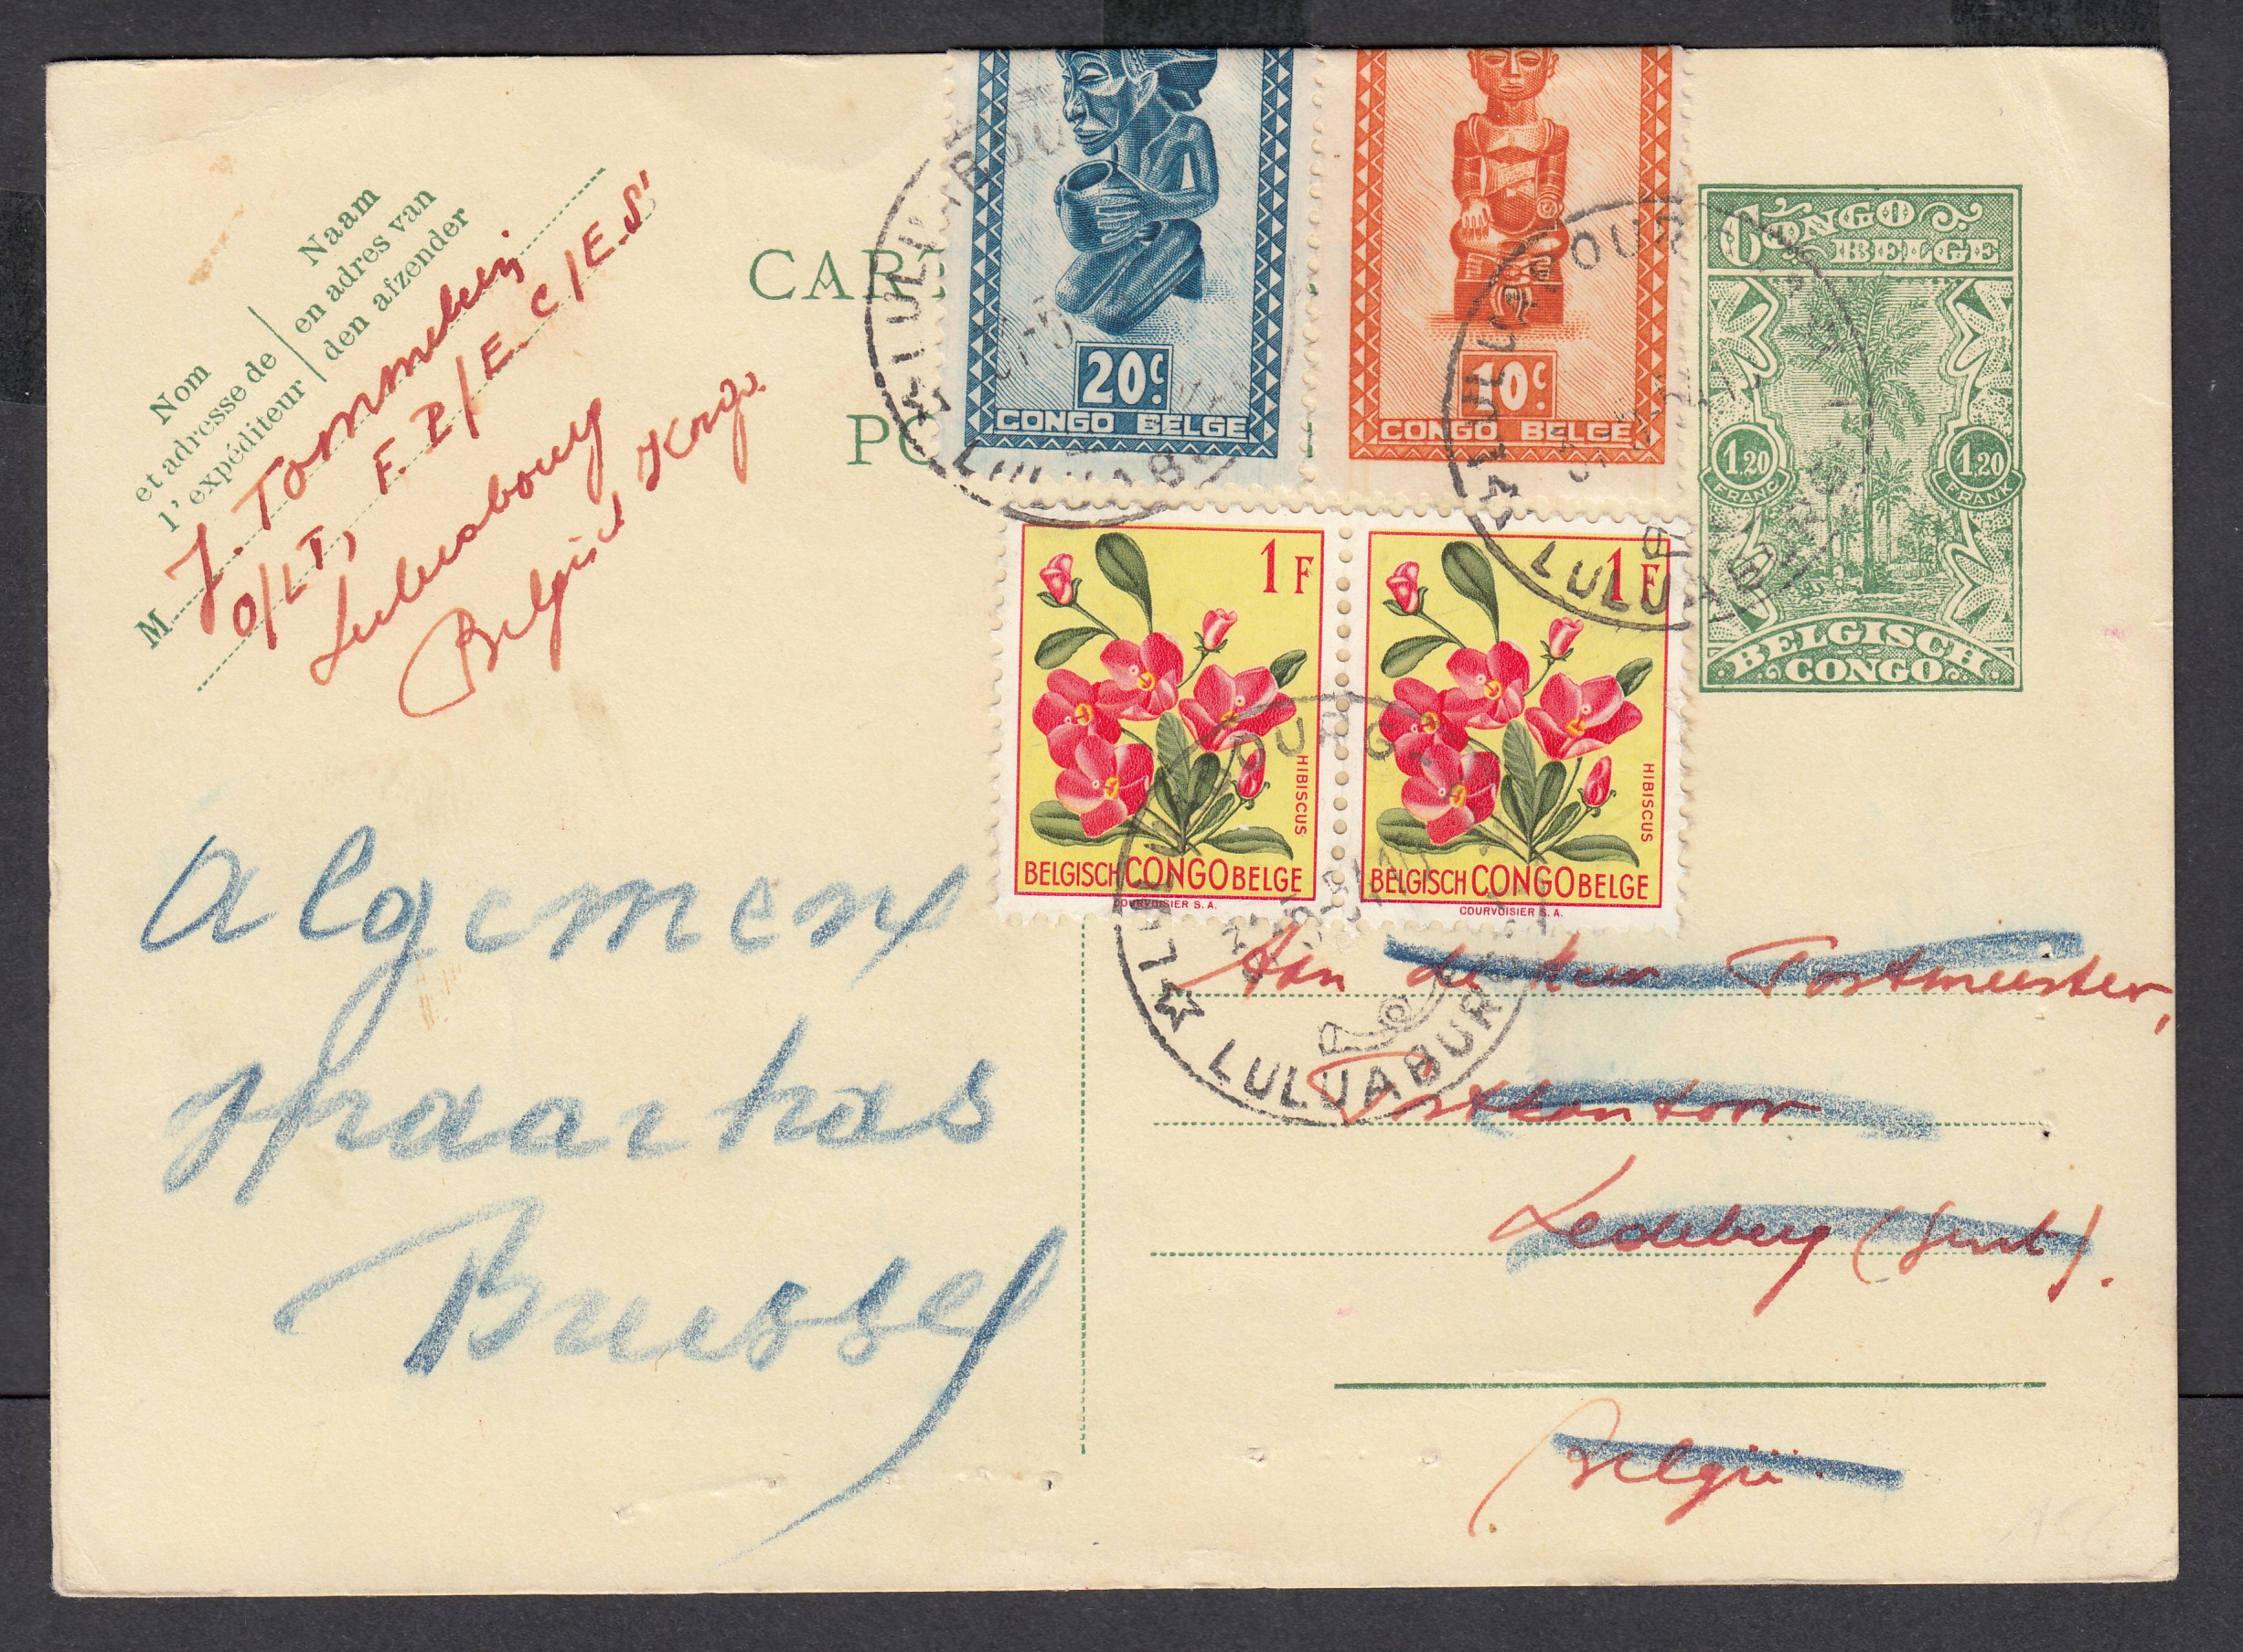 Nom
et adresse de
l'expéditeur
Naam
en adres van
den afzender
M
J.
O/LT, F.P/E.C/E.S'
Luluabourg
Belgisch Kongo
CAR
PO
20c
CONGO BELGE
10c
CONGO BELGE
CONGO
BELGE
1,20
FRANC
1,20
FRANK
BELGISCH
CONGO
1F
HIBISCUS
BELGISCH CONGO BELGE
COURVOISIER S.A.
1F
HIBISCUS
BELGISCH CONGO BELGE
COURVOISIER S.A.
LULUABOURG
LULUABURG
Algemene
spaarkas
Brussel
Aan de Heer Postmeester,
Postkantoor
Ledeberg (Gent).
België